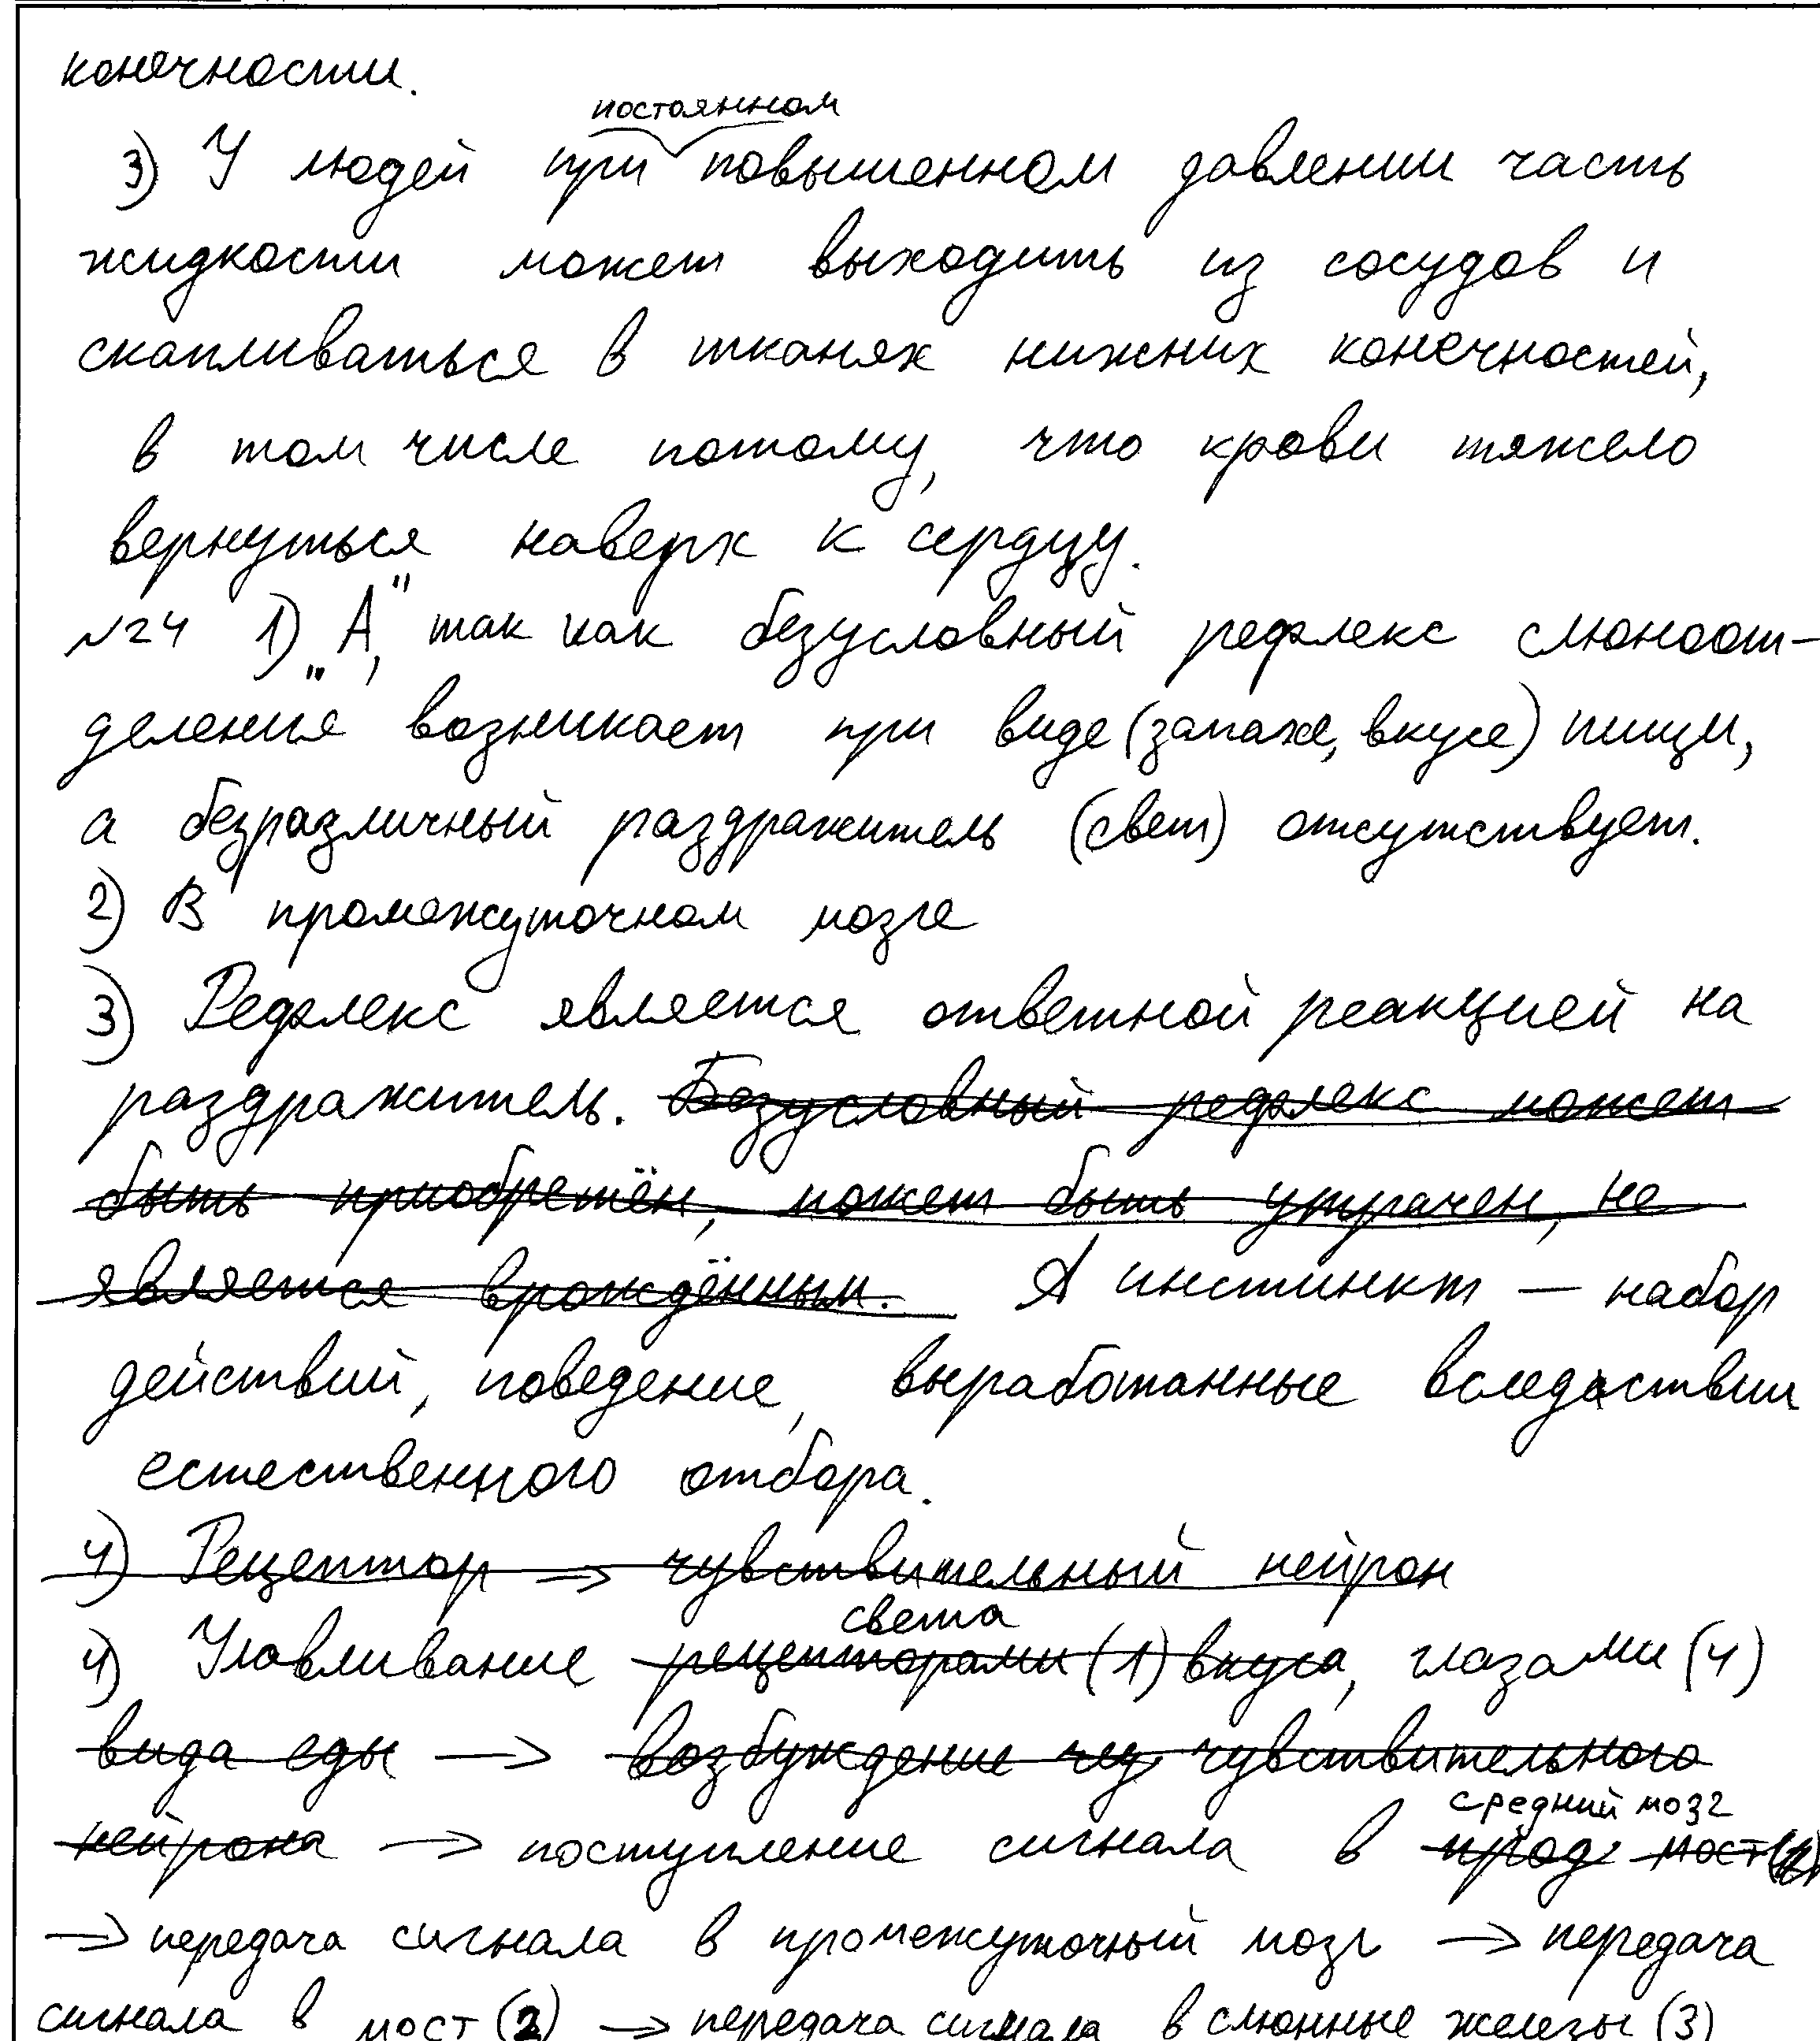 конечности.
постоянном
3) У людей при повышенном давлении часть
жидкости может выходить из сосудов и
скапливаться в тканях нижних конечностей,
в том числе потому, что крови тяжело
вернуться наверх к сердцу.
№24 1) „А", так как безусловный рефлекс слюноот-
деления возникает при виде (запахе, вкусе) пищи,
а безразличный раздражитель (свет) отсутствует.
2) В промежуточном мозге
3) Рефлекс является ответной реакцией на
раздражитель. Безусловный рефлекс может
быть приобретён, может быть утрачен, не
является врождённым. А инстинкт — набор
действий, поведение, выработанные вследствии
естественного отбора.
4) Рецептор → чувствительный нейрон
света
4) Улавливание рецепторами (1) вкуса, глазами (4)
вида еды → возбуждение чув чувствительного
средний мозг
нейрона → поступление сигнала в прод мост (2)
→ передача сигнала в промежуточный мозг → передача
сигнала в мост (2) → передача сигнала в слюнные железы (3)